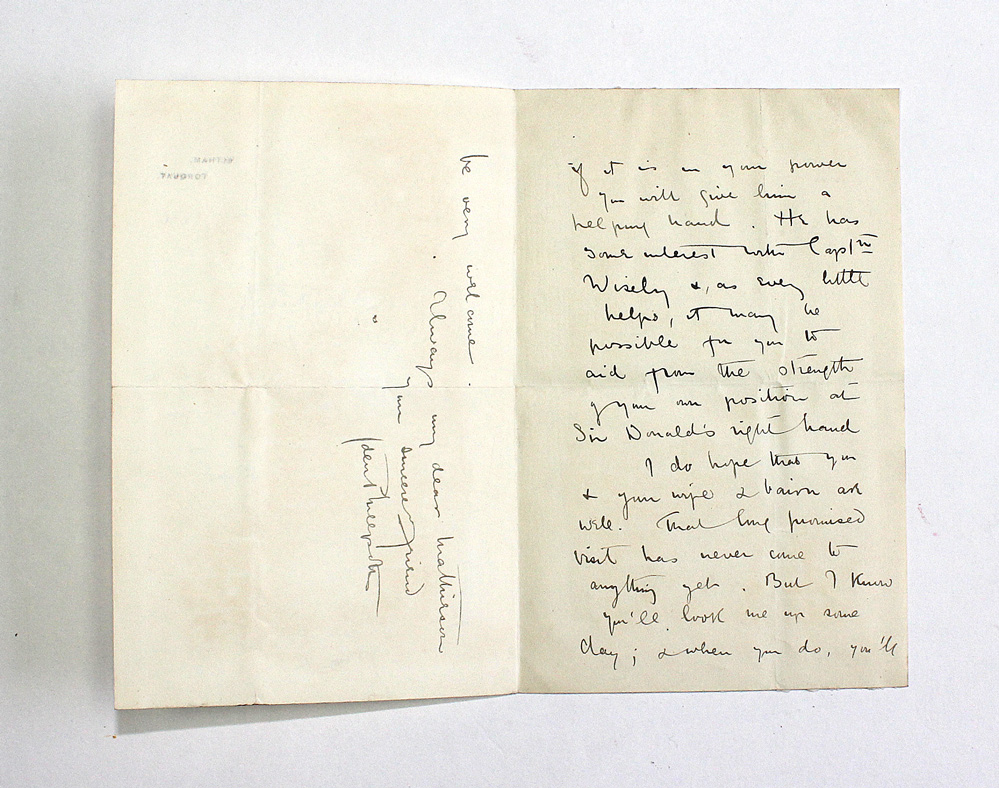 if it is in your power
you will give him a
helping hand. He has
some interest with Captn
Wisely &, as every little
helps, it may be
possible for you to
aid from the strength
of your own position at
Sir Donald's right hand
I do hope that you
& your wife & bairn are
well. That long promised
visit has never come to
anything yet. But I know
you'll look me up some
day; & when you do, you'll
be very welcome.
Always my dear Mathieson
your sincere friend